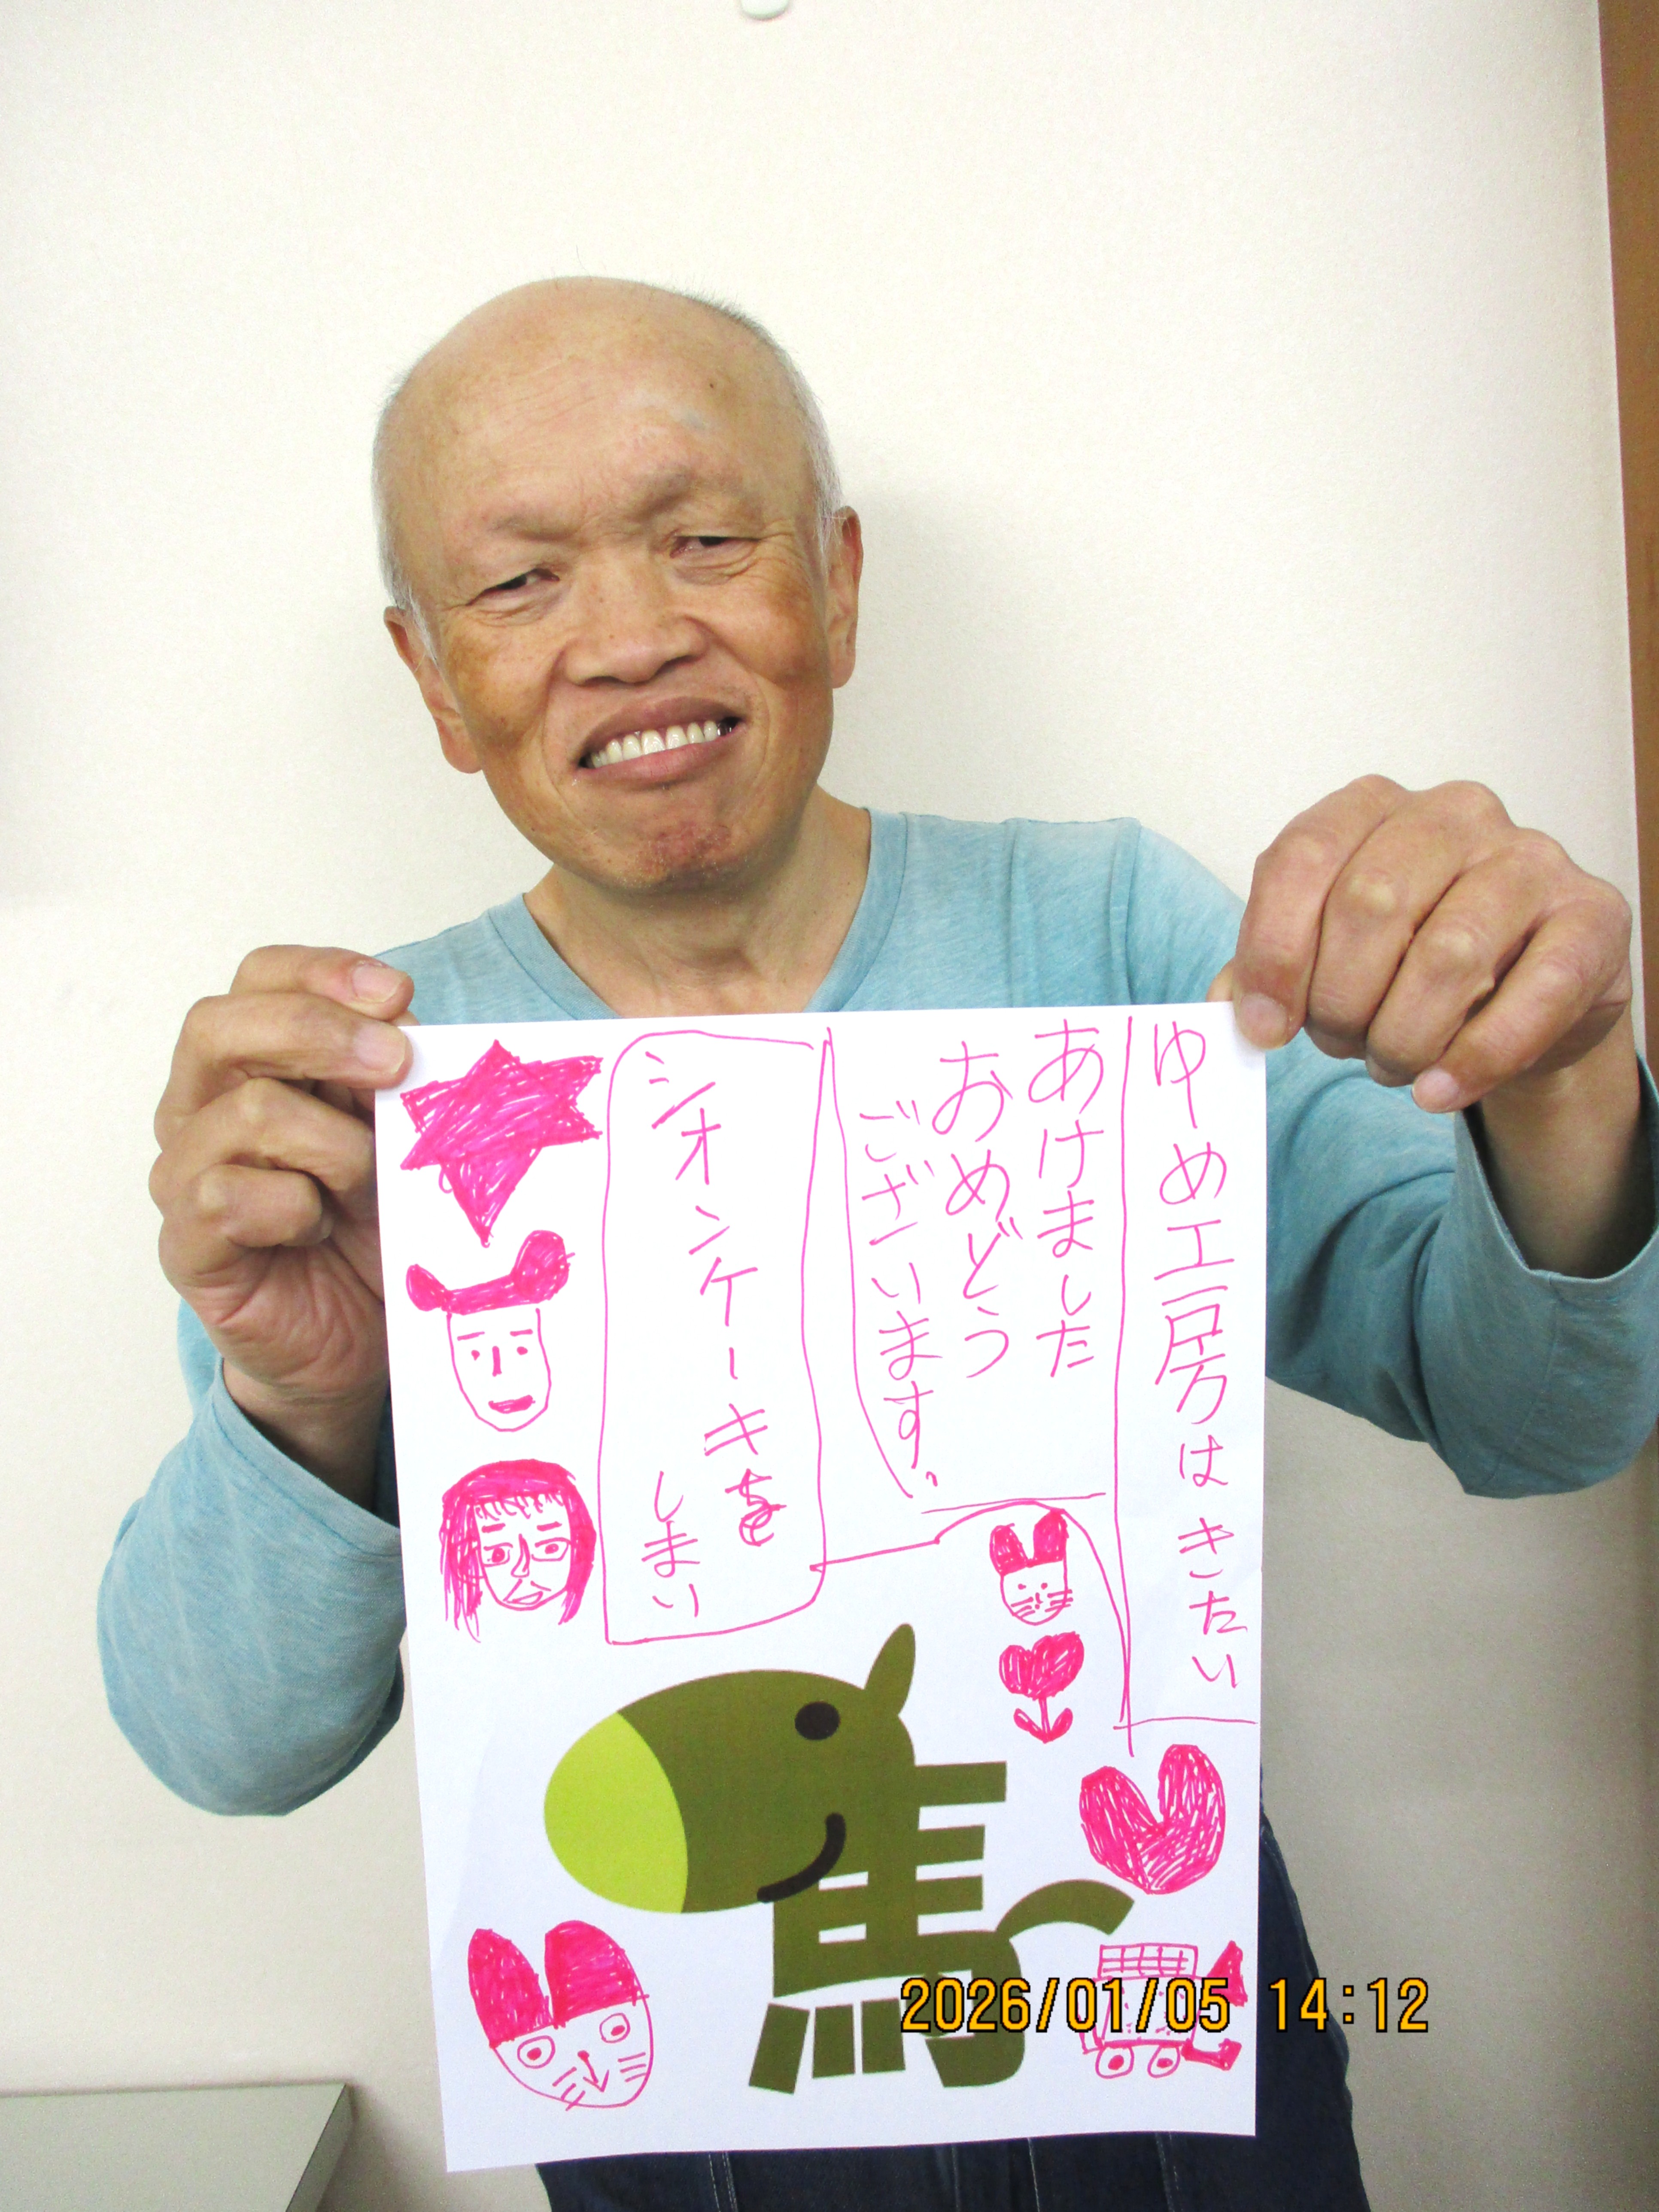 ゆめ工房はきたい
あけました
おめどう
ございます。
シオンケーキを
しまい
馬
2026/01/05 14:12